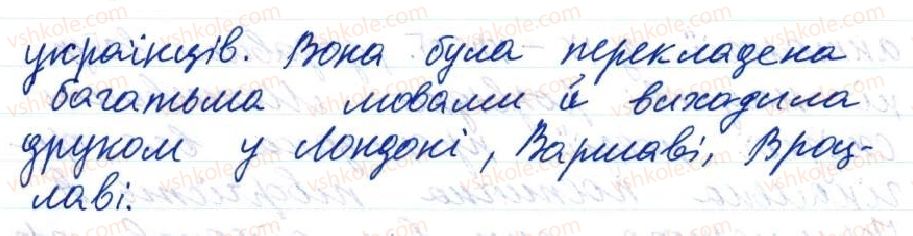 українців. Вона була перекладена
багатьма мовами й виходила
друком у Лондоні, Варшаві, Вроц-
лаві.